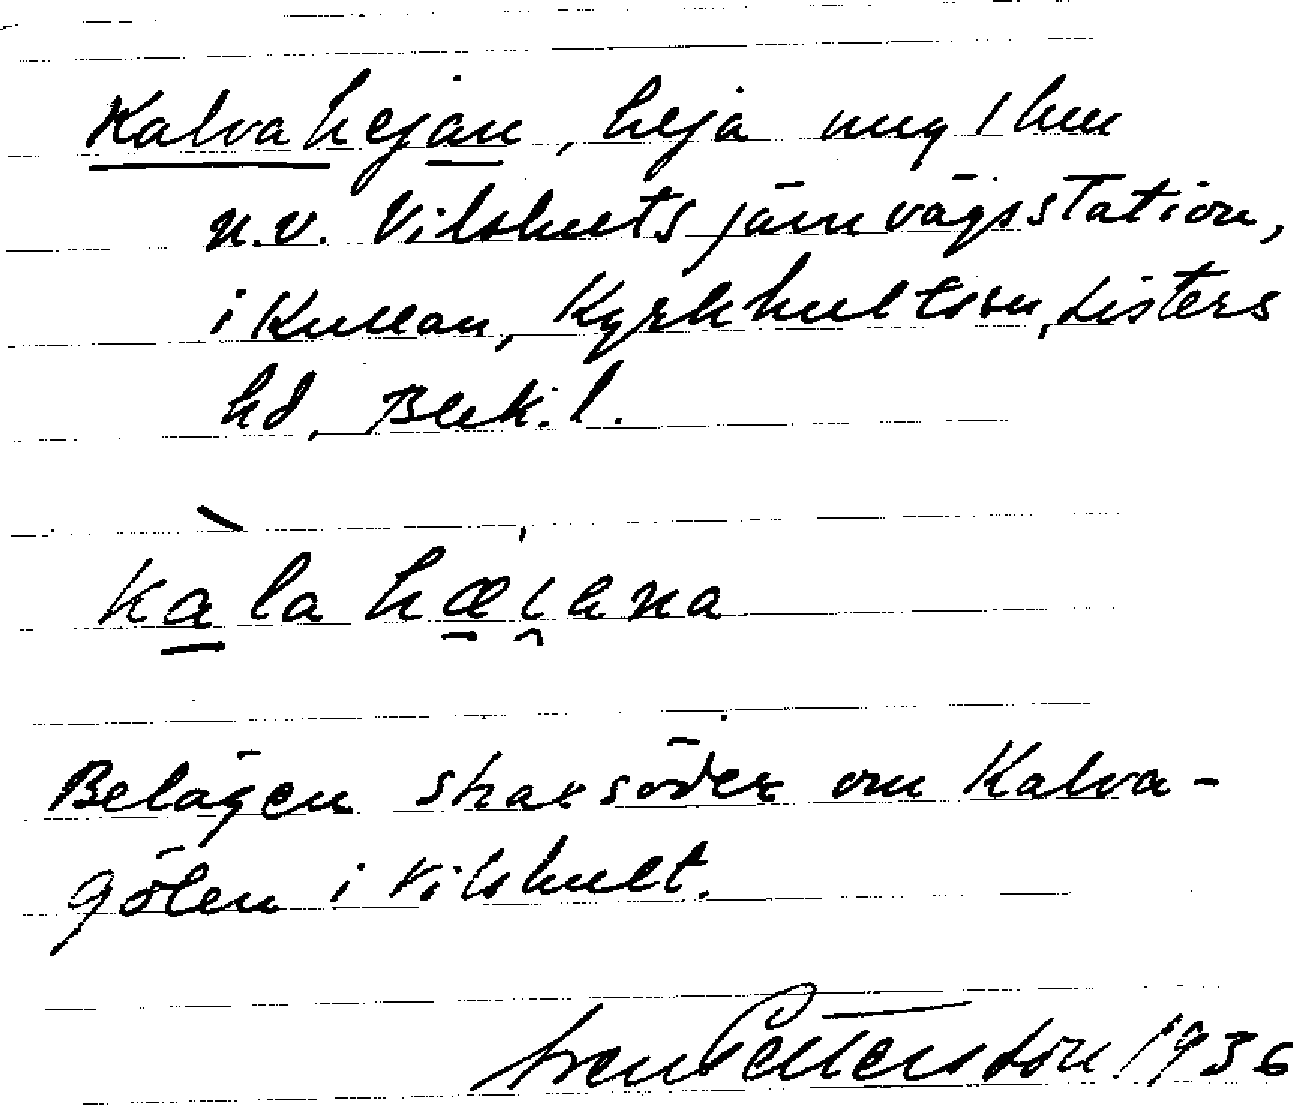 Kalvahejan, heja ung 1 km
n.v. Vilshults järnvägsstation,
i Kullan, Kyrkhults sn, Listers
hd, Blek. l.
kàlahæi̯ana
Belägen strax söder om Kalva-
gölen i Vilshult.
Sven Pettersson 1936